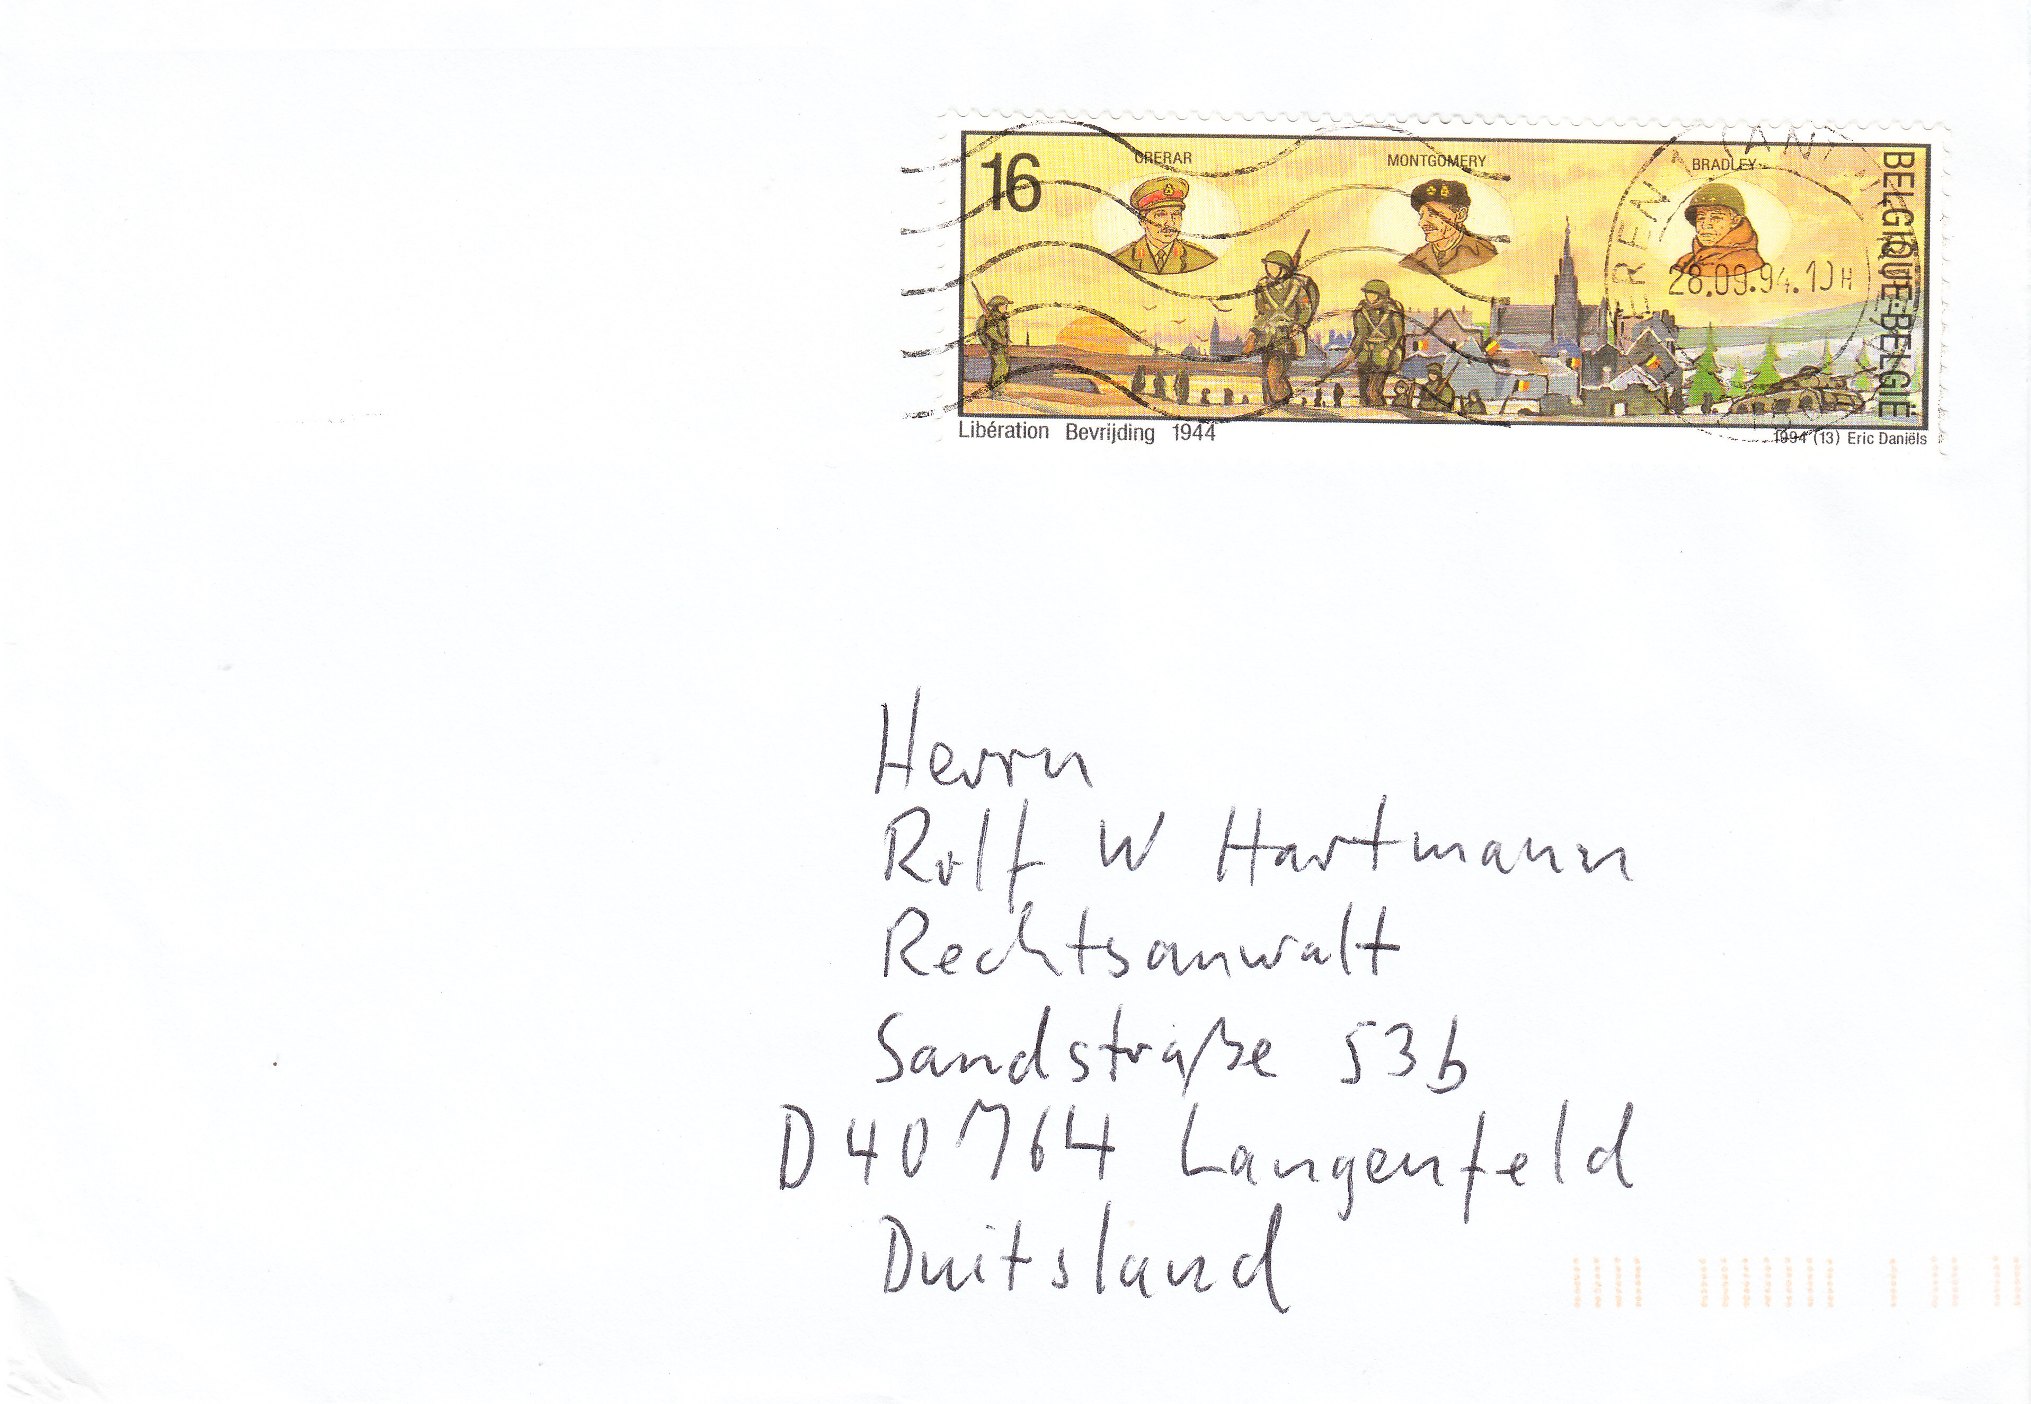 16
CRERAR
MONTGOMERY
BRADLEY
BELGIQUE-BELGIË
28.09.94.
Libération Bevrijding 1944
1994 (13) Eric Daniëls
Herrn
Rolf W Hartmann
Rechtsanwalt
Sandstraße 53b
D 40764 Langenfeld
Duitsland